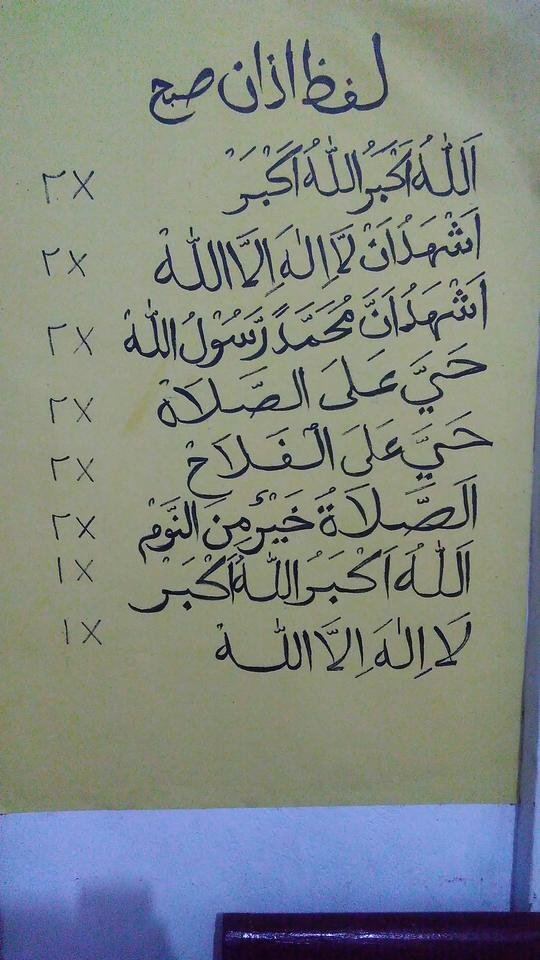 لفظ اذان صبح
اَللّٰهُ اَكْبَرُ اللّٰهُ اَكْبَرْ ٢X
اَشْهَدُ اَنْ لَّا اِلٰهَ اِلَّا اللّٰهْ ٢X
اَشْهَدُ اَنَّ مُحَمَّدً رَّسُوْلُ اللّٰهْ ٢X
حَيَّ عَلَى الصَّلَاةْ ٢X
حَيَّ عَلَى الْفَلَاحْ ٢X
اَلصَّلَاةُ خَيْرٌ مِنَ النَّوْمْ ٢X
اَللّٰهُ اَكْبَرُ اللّٰهُ اَكْبَرْ ١X
لَا اِلٰهَ اِلَّا اللّٰهْ ١X